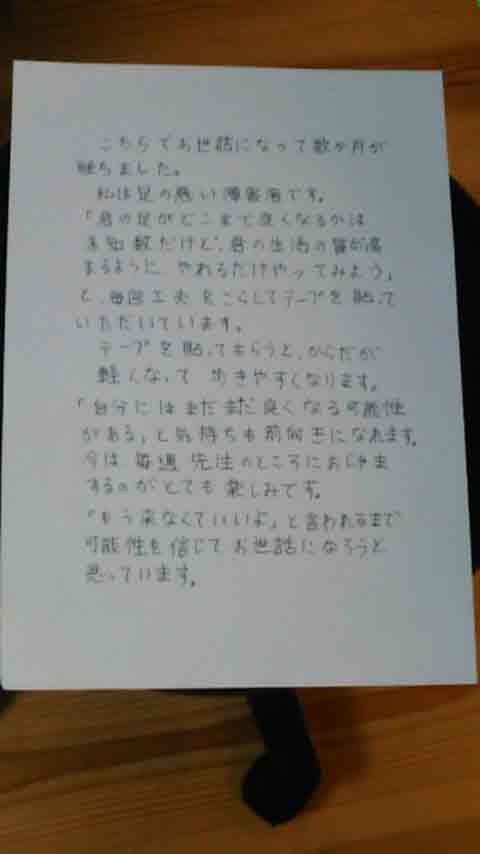 こちらでお世話になって数か月が
経ちました。
私は足の悪い障害者です。
「君の足がどこまで良くなるかは
未知数だけど、君の生活の質が高
まるように、やれるだけやってみよう」
と、毎回工夫をこらしてテープを貼って
いただいています。
テープを貼ってもらうと、からだが
軽くなって 歩きやすくなります。
「自分にはまだまだ良くなる可能性
がある」と気持ちも前向きになれます。
今は毎週先生のところにおじゃま
するのがとても楽しみです。
「もう来なくていいよ」と言われるまで
可能性を信じてお世話になろうと
思っています。